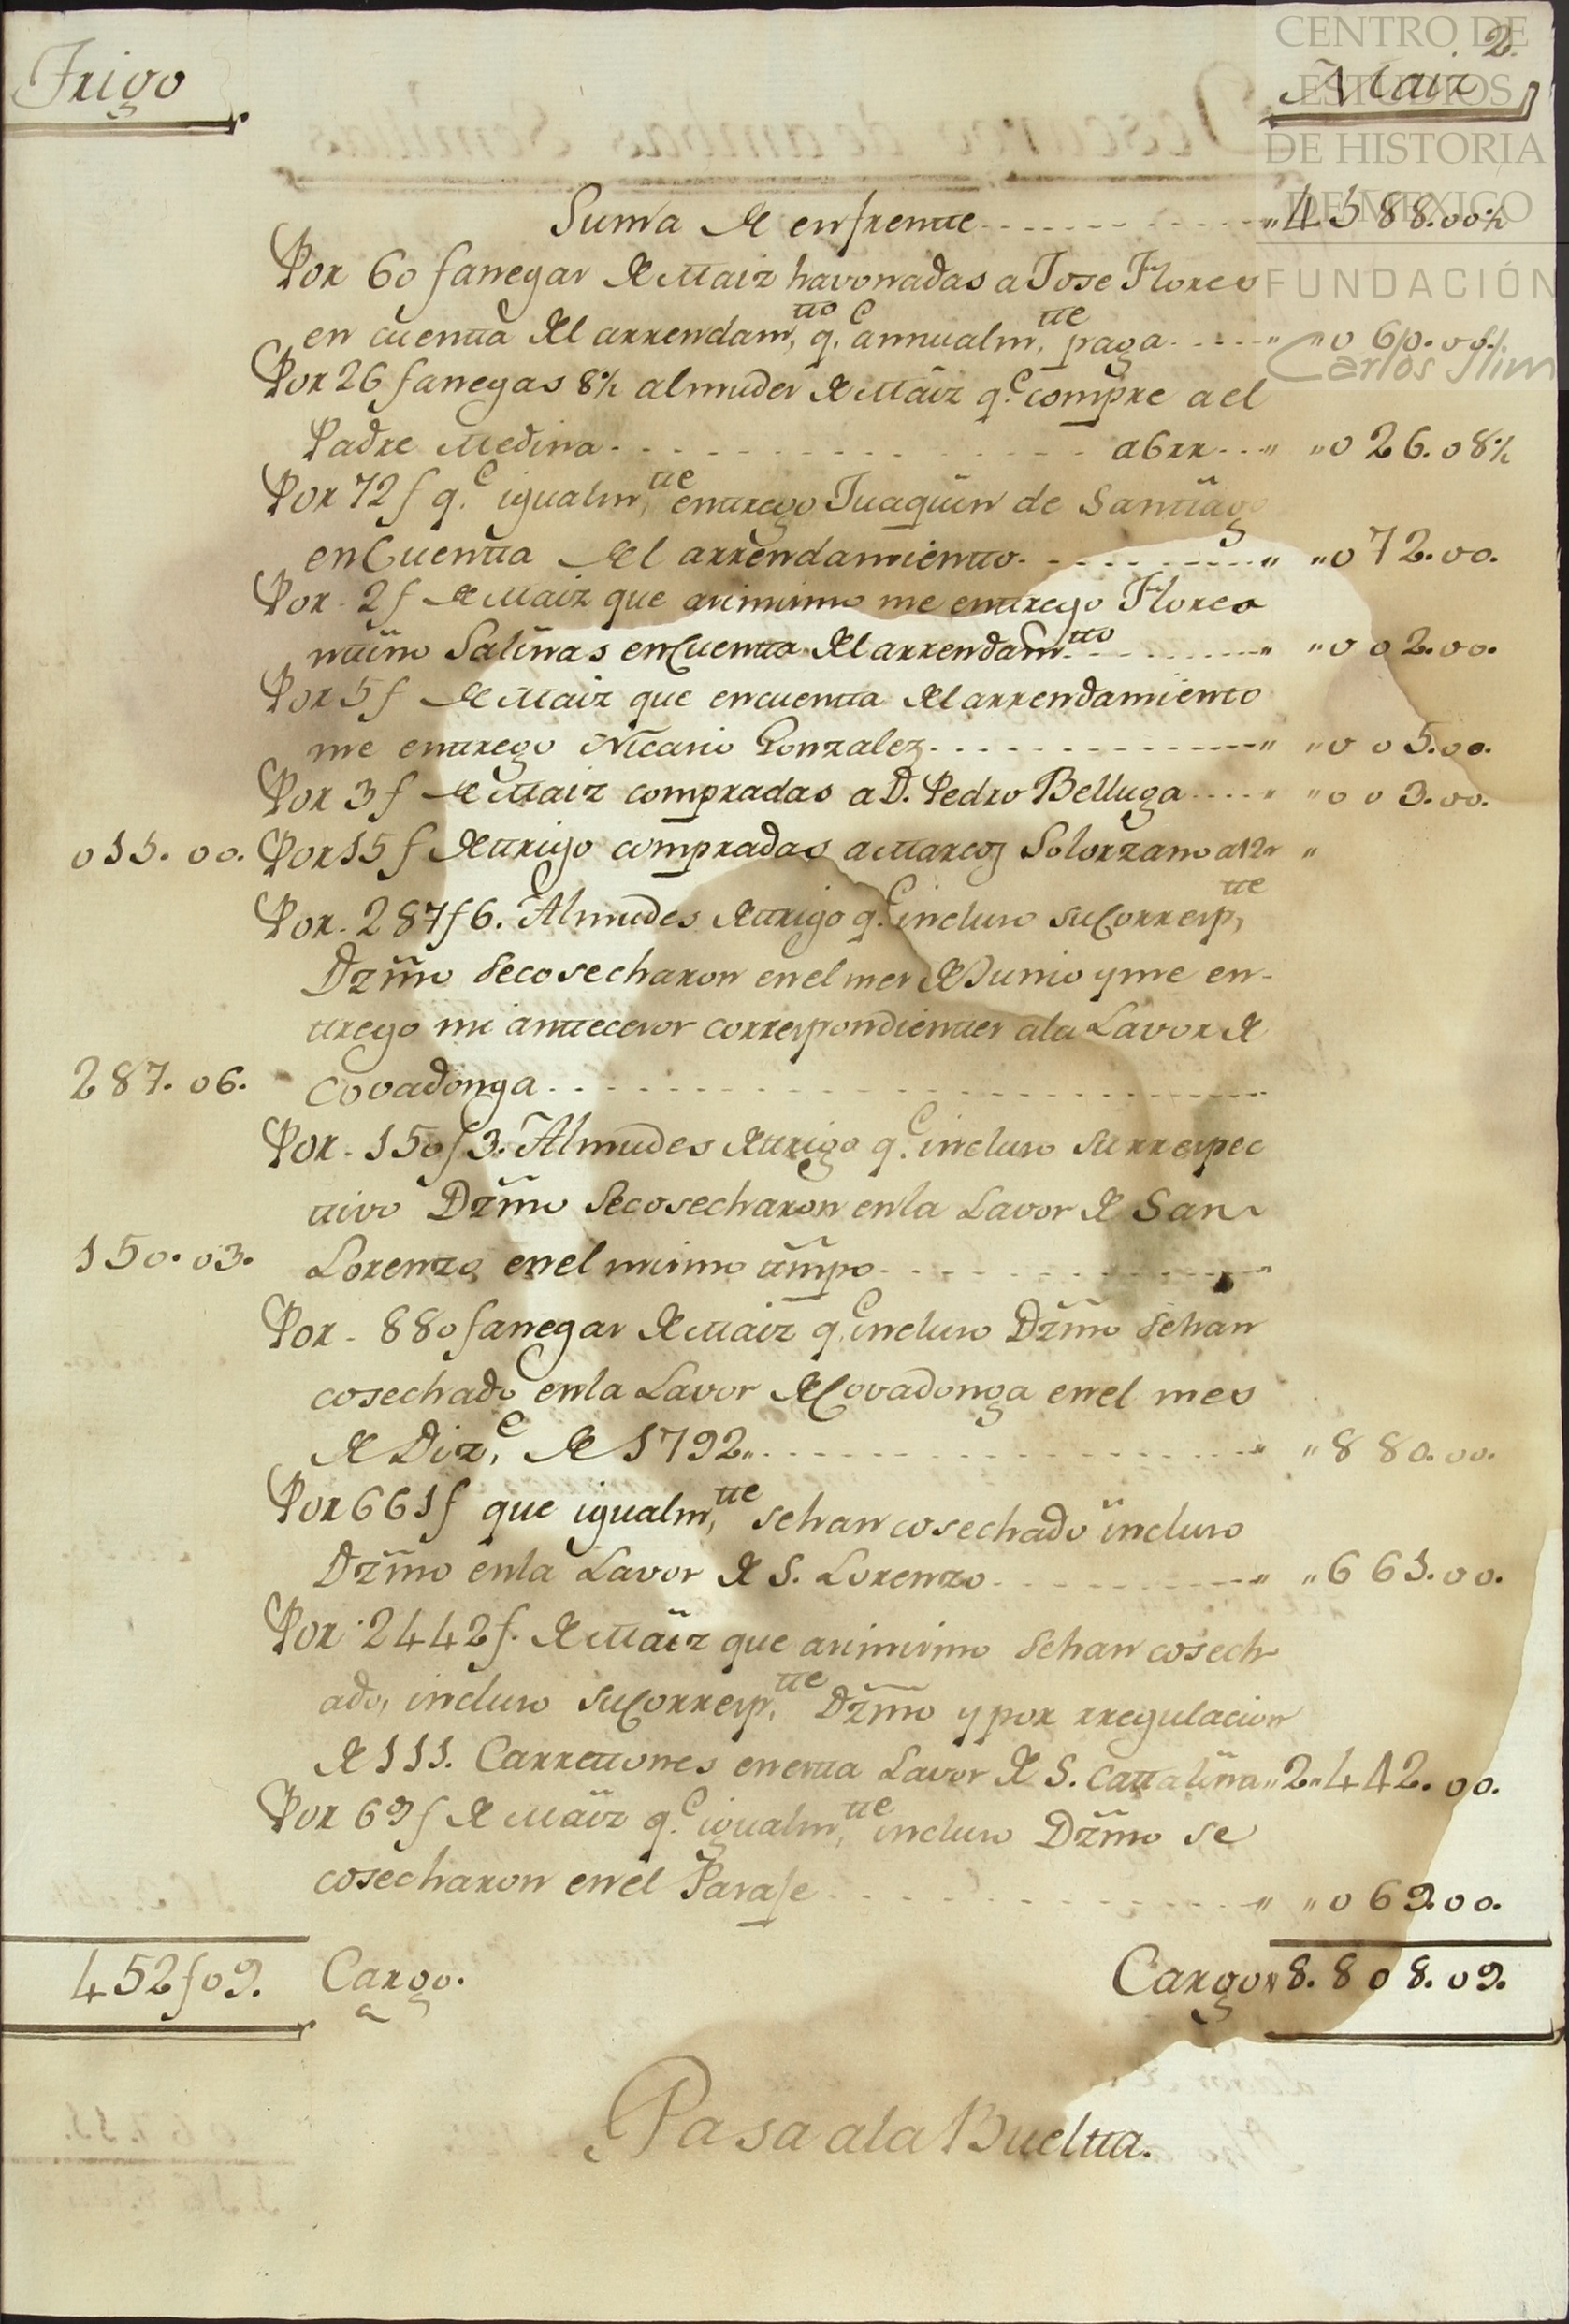 Trigo
Maiz
2.
CENTRO DE
ESTUDIOS
DE HISTORIA
DE MEXICO
FUNDACIÓN
Carlos Slim
Suma de enfrente " 4588.00½
Por 60 fanegas de Maiz havonadas a Jose Flores
en cuenta del arrendam.tto q.e annualm.tte paga " "060.00.
Por 26 fanegas 8½ almudes de Maiz q.e compre a el
Padre Medina a6rr " "026.08½
Por 72 f q.e igualm.tte entrego Juaquin de Santiago
en Cuenta del arrendamientto " "072.00.
Por 2 f de Maiz que asimismo me entrego Flores
ntiño Salinas en Cuenta del arrendam.tto " "002.00.
Por 5 f de Maiz que en cuenta del arrendamiento
me entrego Nicacio Gonzalez " "005.00.
Por 3 f de Maiz compradas a D. Pedro Belluga " "003.00.
015.00. Por 15 f de trigo compradas a Marcos Solorzano a 12r "
Por 287 f 6. Almudes de trigo q.e incluso su Corresp.tte
Dzmo se cosecharon en el mes de Junio y me en-
trego mi antecesor correspondientes a la Lavor de
287.06. Covadonga
Por 150 f 3. Almudes de trigo q.e incluso su rrespec
tivo Dzmo se cosecharon en la Lavor de San
150.03. Lorenzo en el mismo tmpo
Por 880 fanegas de Maiz q.e incluso Dzmo se han
cosechado en la Lavor de Covadonga en el mes
de Diz.e de 1792 " "880.00.
Por 661 f que igualm.tte se han cosechado incluso
Dzmo en la Lavor de S. Lorenzo " "661.00.
Por 2442 f. de Maiz que asimismo se han cosech
ado, incluso su Corresp.tte Dzmo y por rregulacion
de 111. Carrettones en esta Lavor de S. Cattalina "2"442.00.
Por 69 f de Maiz q.e igualm.tte incluso Dzmo se
cosecharon en el Paraje " "069.00.
452 f 09. Cargo. Cargos 8.808.09.
Pasa a la Buelta.